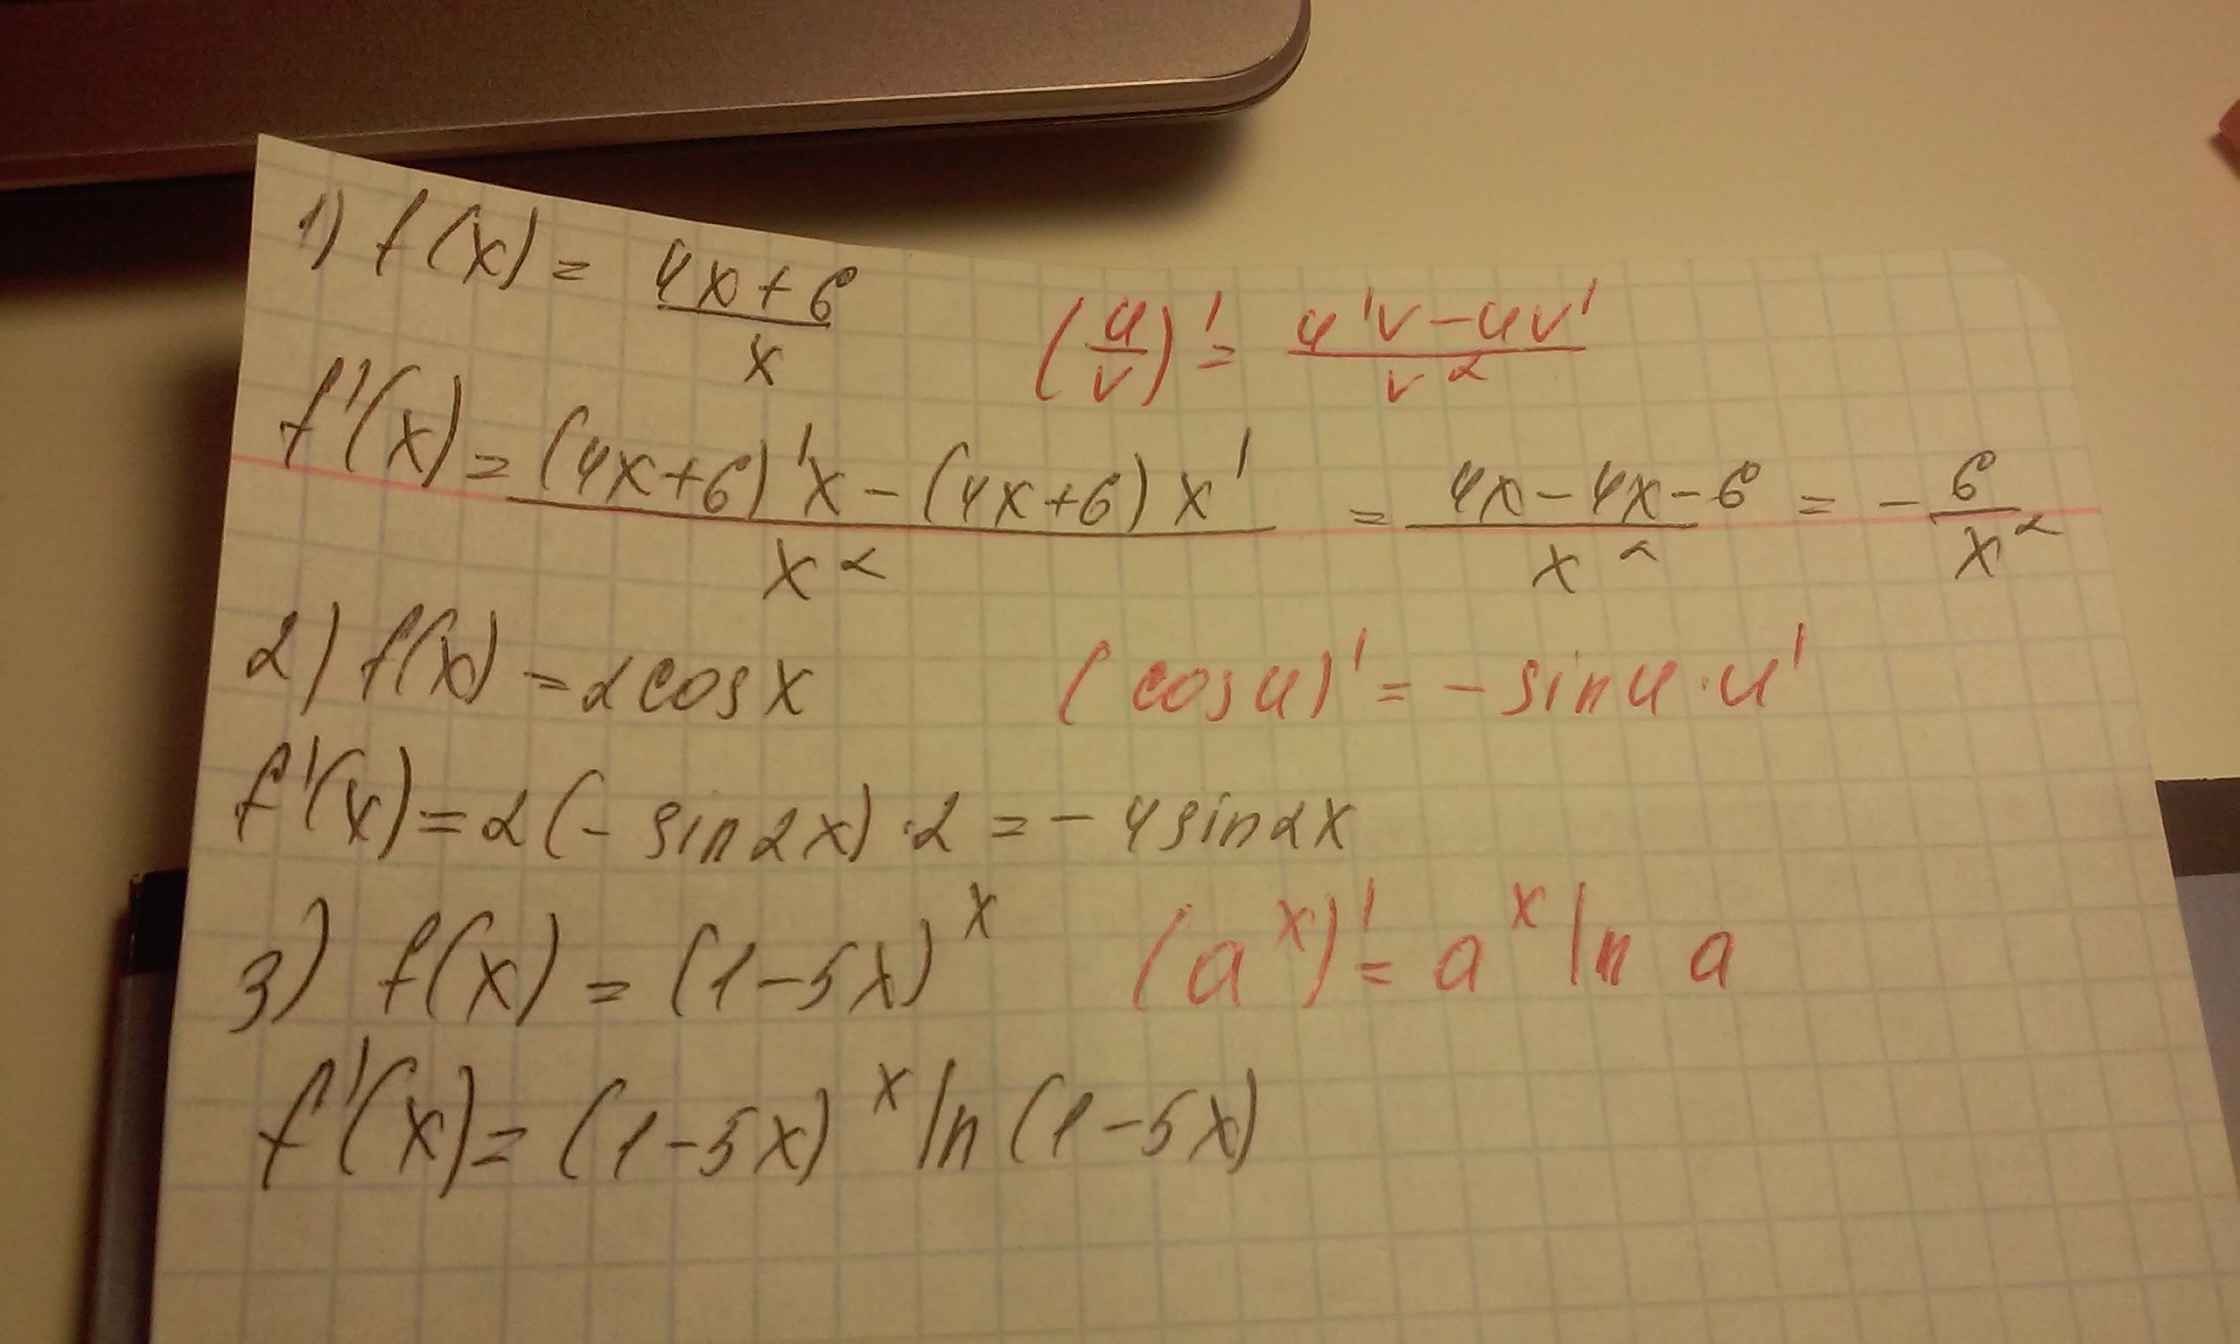 1) f(x) = (4x+6)/x (u/v)' = (u'v-uv')/v²
f'(x) = ((4x+6)'x - (4x+6)x')/x² = (4x-4x-6)/x² = - 6/x²
2) f(x) = 2cosx (cosu)' = -sinu·u'
f'(x) = 2(-sin2x)·2 = -4sin2x
3) f(x) = (1-5x)ˣ (aˣ)' = aˣ ln a
f'(x) = (1-5x)ˣ ln(1-5x)